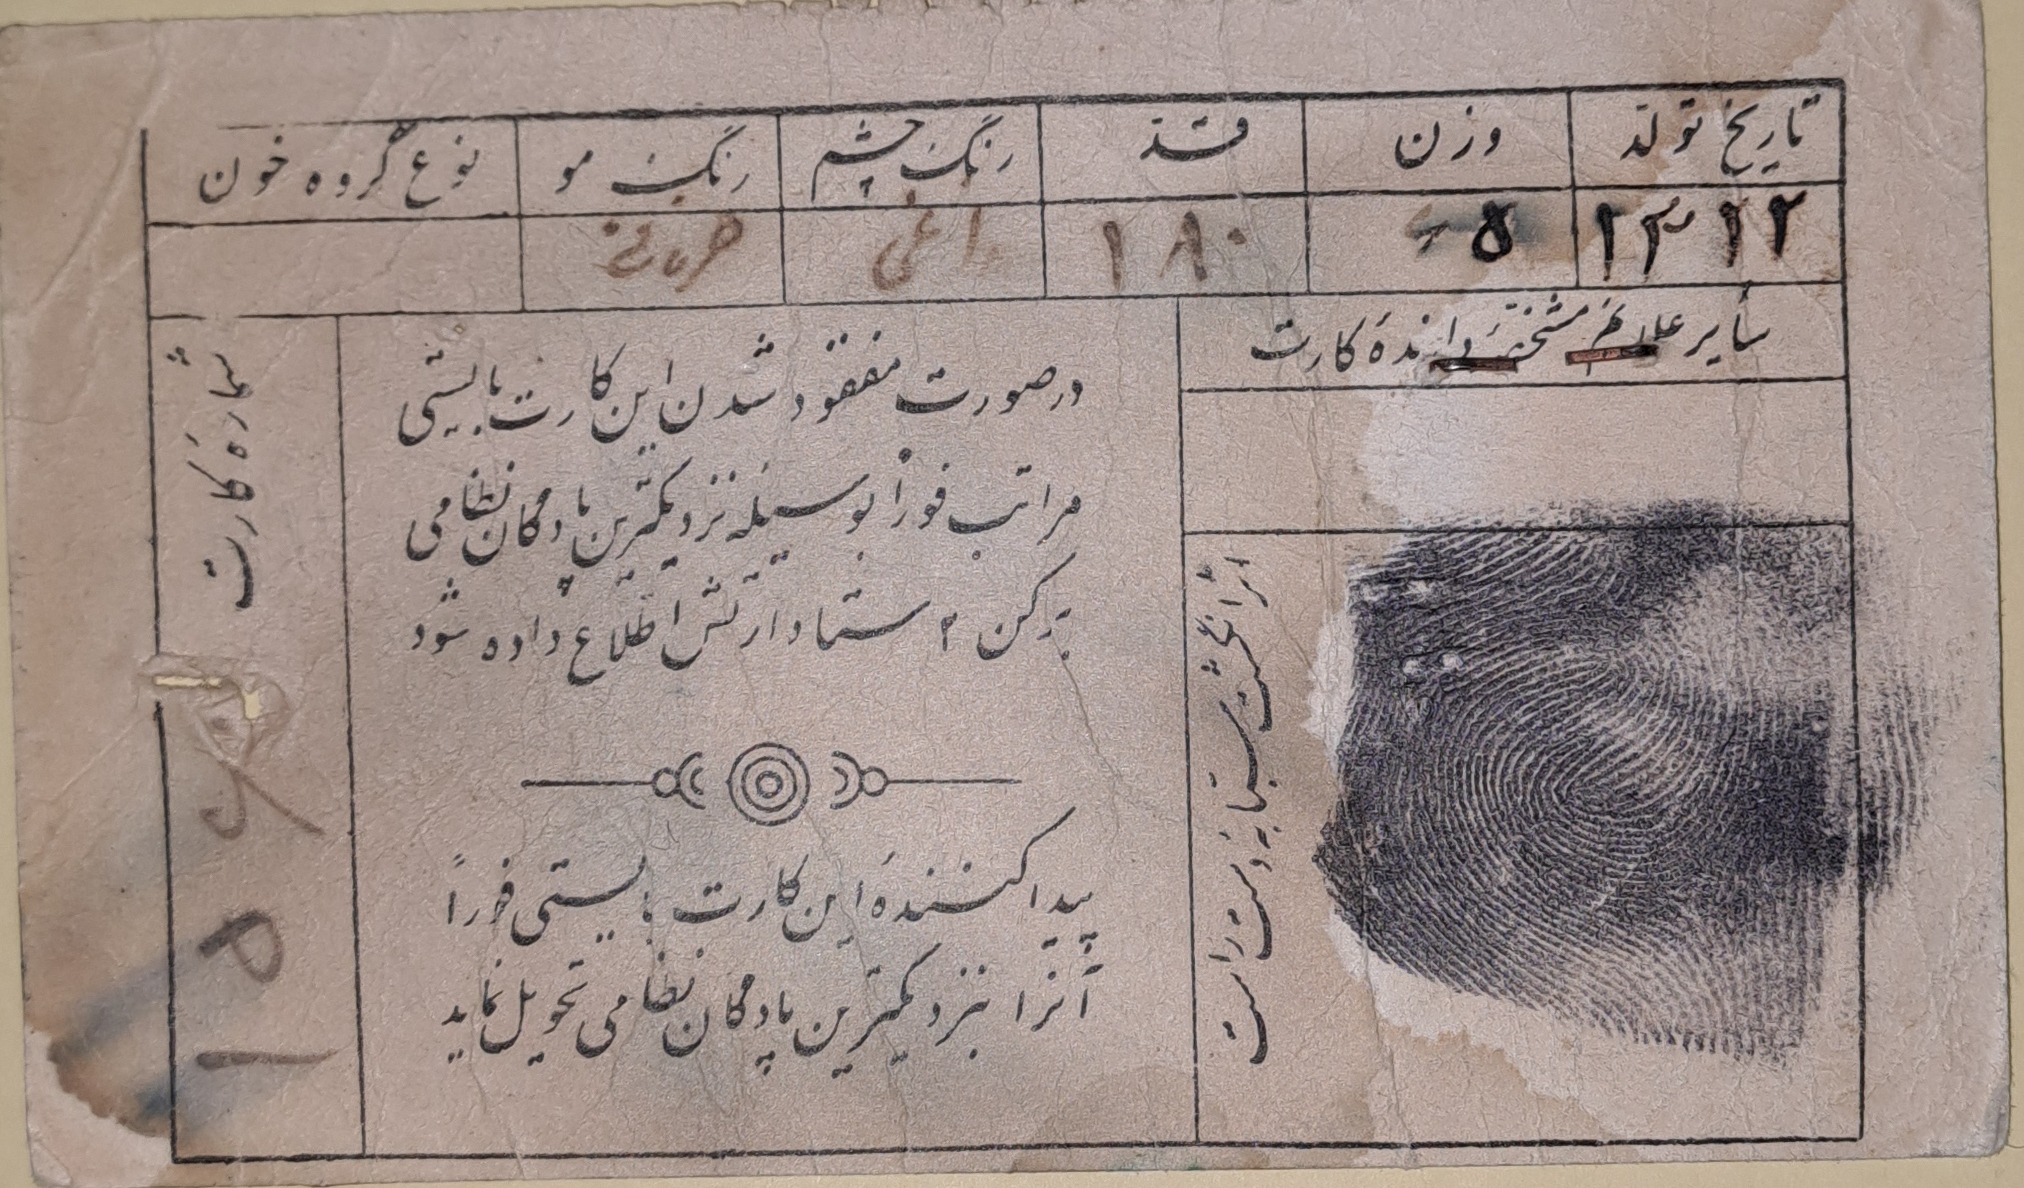 تاریخ تولد وزن قد رنگ چشم رنگ مو نوع گروه خون
۱۳۱۲ ۱۸۰ زاغی خرمائی
سایر علائم مشخصه دارندهٔ کارت
در صورت مفقود شدن این کارت بایستی
مراتب فوراً بوسیله نزدیکترین پادگان نظامی
برکن ۲ ستاد ارتش اطلاع داده شود
پیدا کنندهٔ این کارت بایستی فوراً
آنرا بنزدیکترین پادگان نظامی تحویل نماید
اثر انگشت سبابه دست راست
شمارهٔ کارت